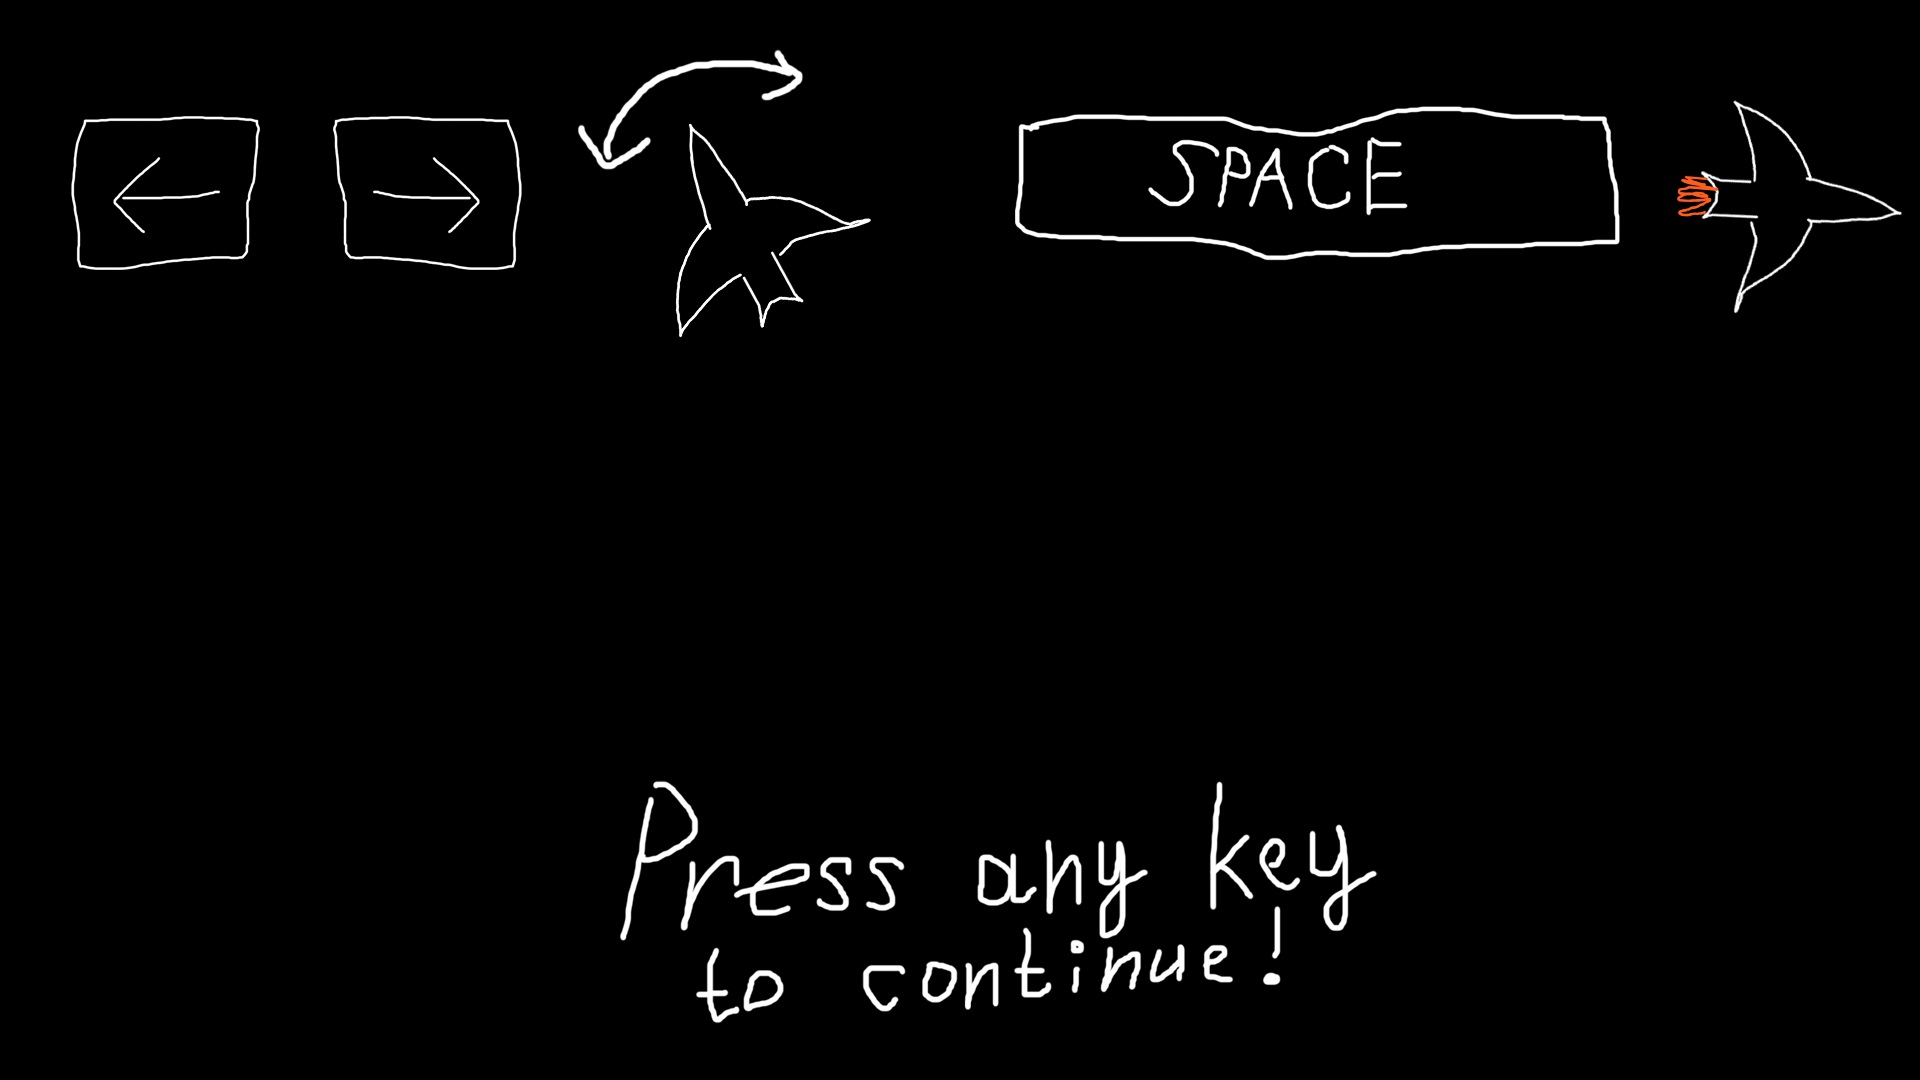 SPACE
Press any key
to continue!